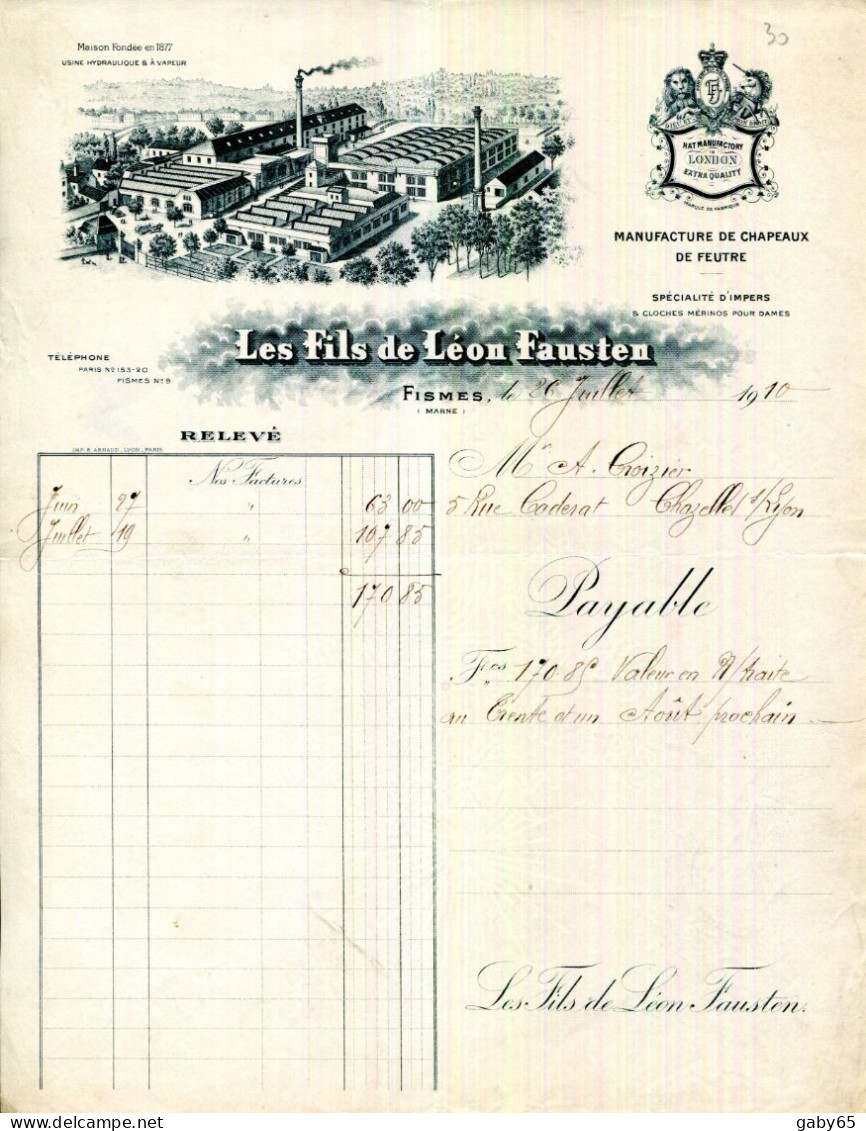 30
Maison Fondée en 1877
USINE HYDRAULIQUE & À VAPEUR
HAT MANUFACTORY
LONDON
EXTRA QUALITY
MARQUE DE FABRIQUE
MANUFACTURE DE CHAPEAUX
DE FEUTRE
SPÉCIALITÉ D'IMPERS
& CLOCHES MÉRINOS POUR DAMES
Les Fils de Léon Fausten
TÉLÉPHONE
PARIS No 153-20
FISMES No 9
FISMES, le 26 Juillet 1910
(MARNE)
RELEVÉ
IMP. B. ARNAUD, LYON, PARIS
Nos Factures
Juin 27 " 63 00
Juillet 19 " 107 85
170 85
Mr A. Croizier
5 Rue Caderat Chazelles s/Lyon
Payable
Fcs 170.85 Valeur en N/traite
au Trente et un Août prochain
Les Fils de Léon Fausten.
delcampe.net
gaby65